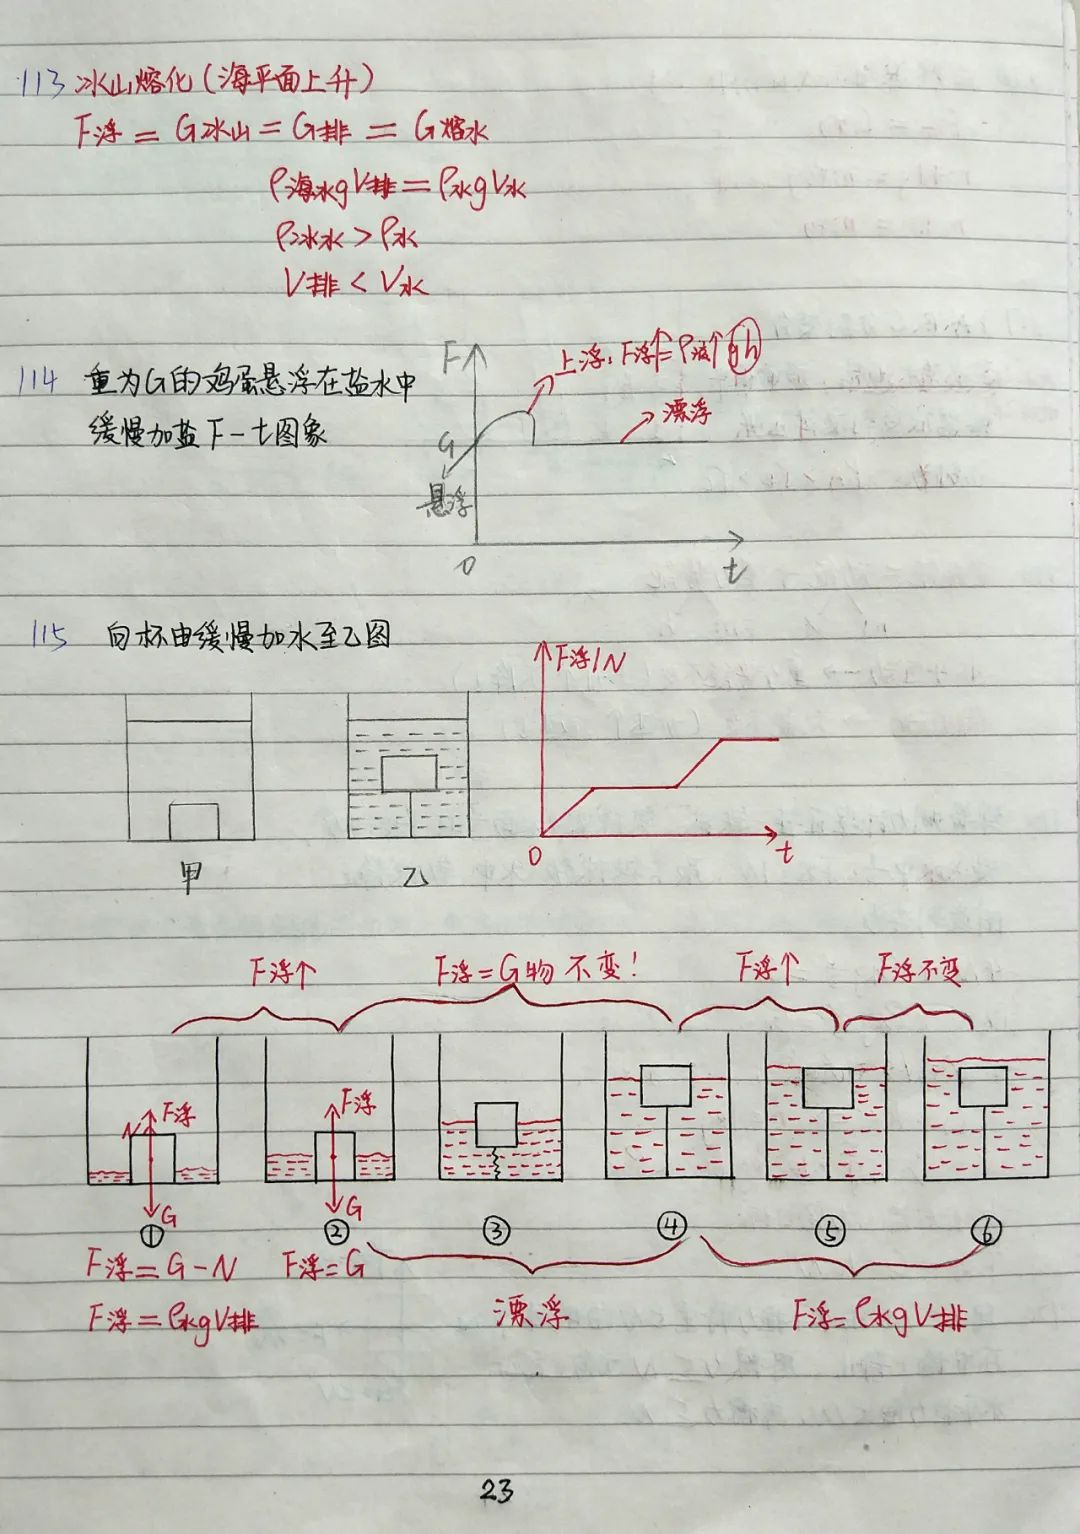 113 冰山熔化(海平面上升)
F浮 = G冰山 = G排 = G熔水
ρ海水gV排 = ρ水gV水
ρ海水 > ρ水
V排 < V水
114 重为G的鸡蛋悬浮在盐水中
缓慢加盐 F-t图象
F
上浮:F浮↑=ρ液↑gh
漂浮
G
悬浮
0
t
115 向杯由缓慢加水至乙图
F浮/N
0
t
甲
乙
F浮↑
F浮=G物 不变!
F浮↑
F浮不变
N
F浮
F浮
G
G
① ② ③ ④ ⑤ ⑥
F浮=G-N
F浮=G
F浮=ρ水gV排
漂浮
F浮=ρ水gV排
23